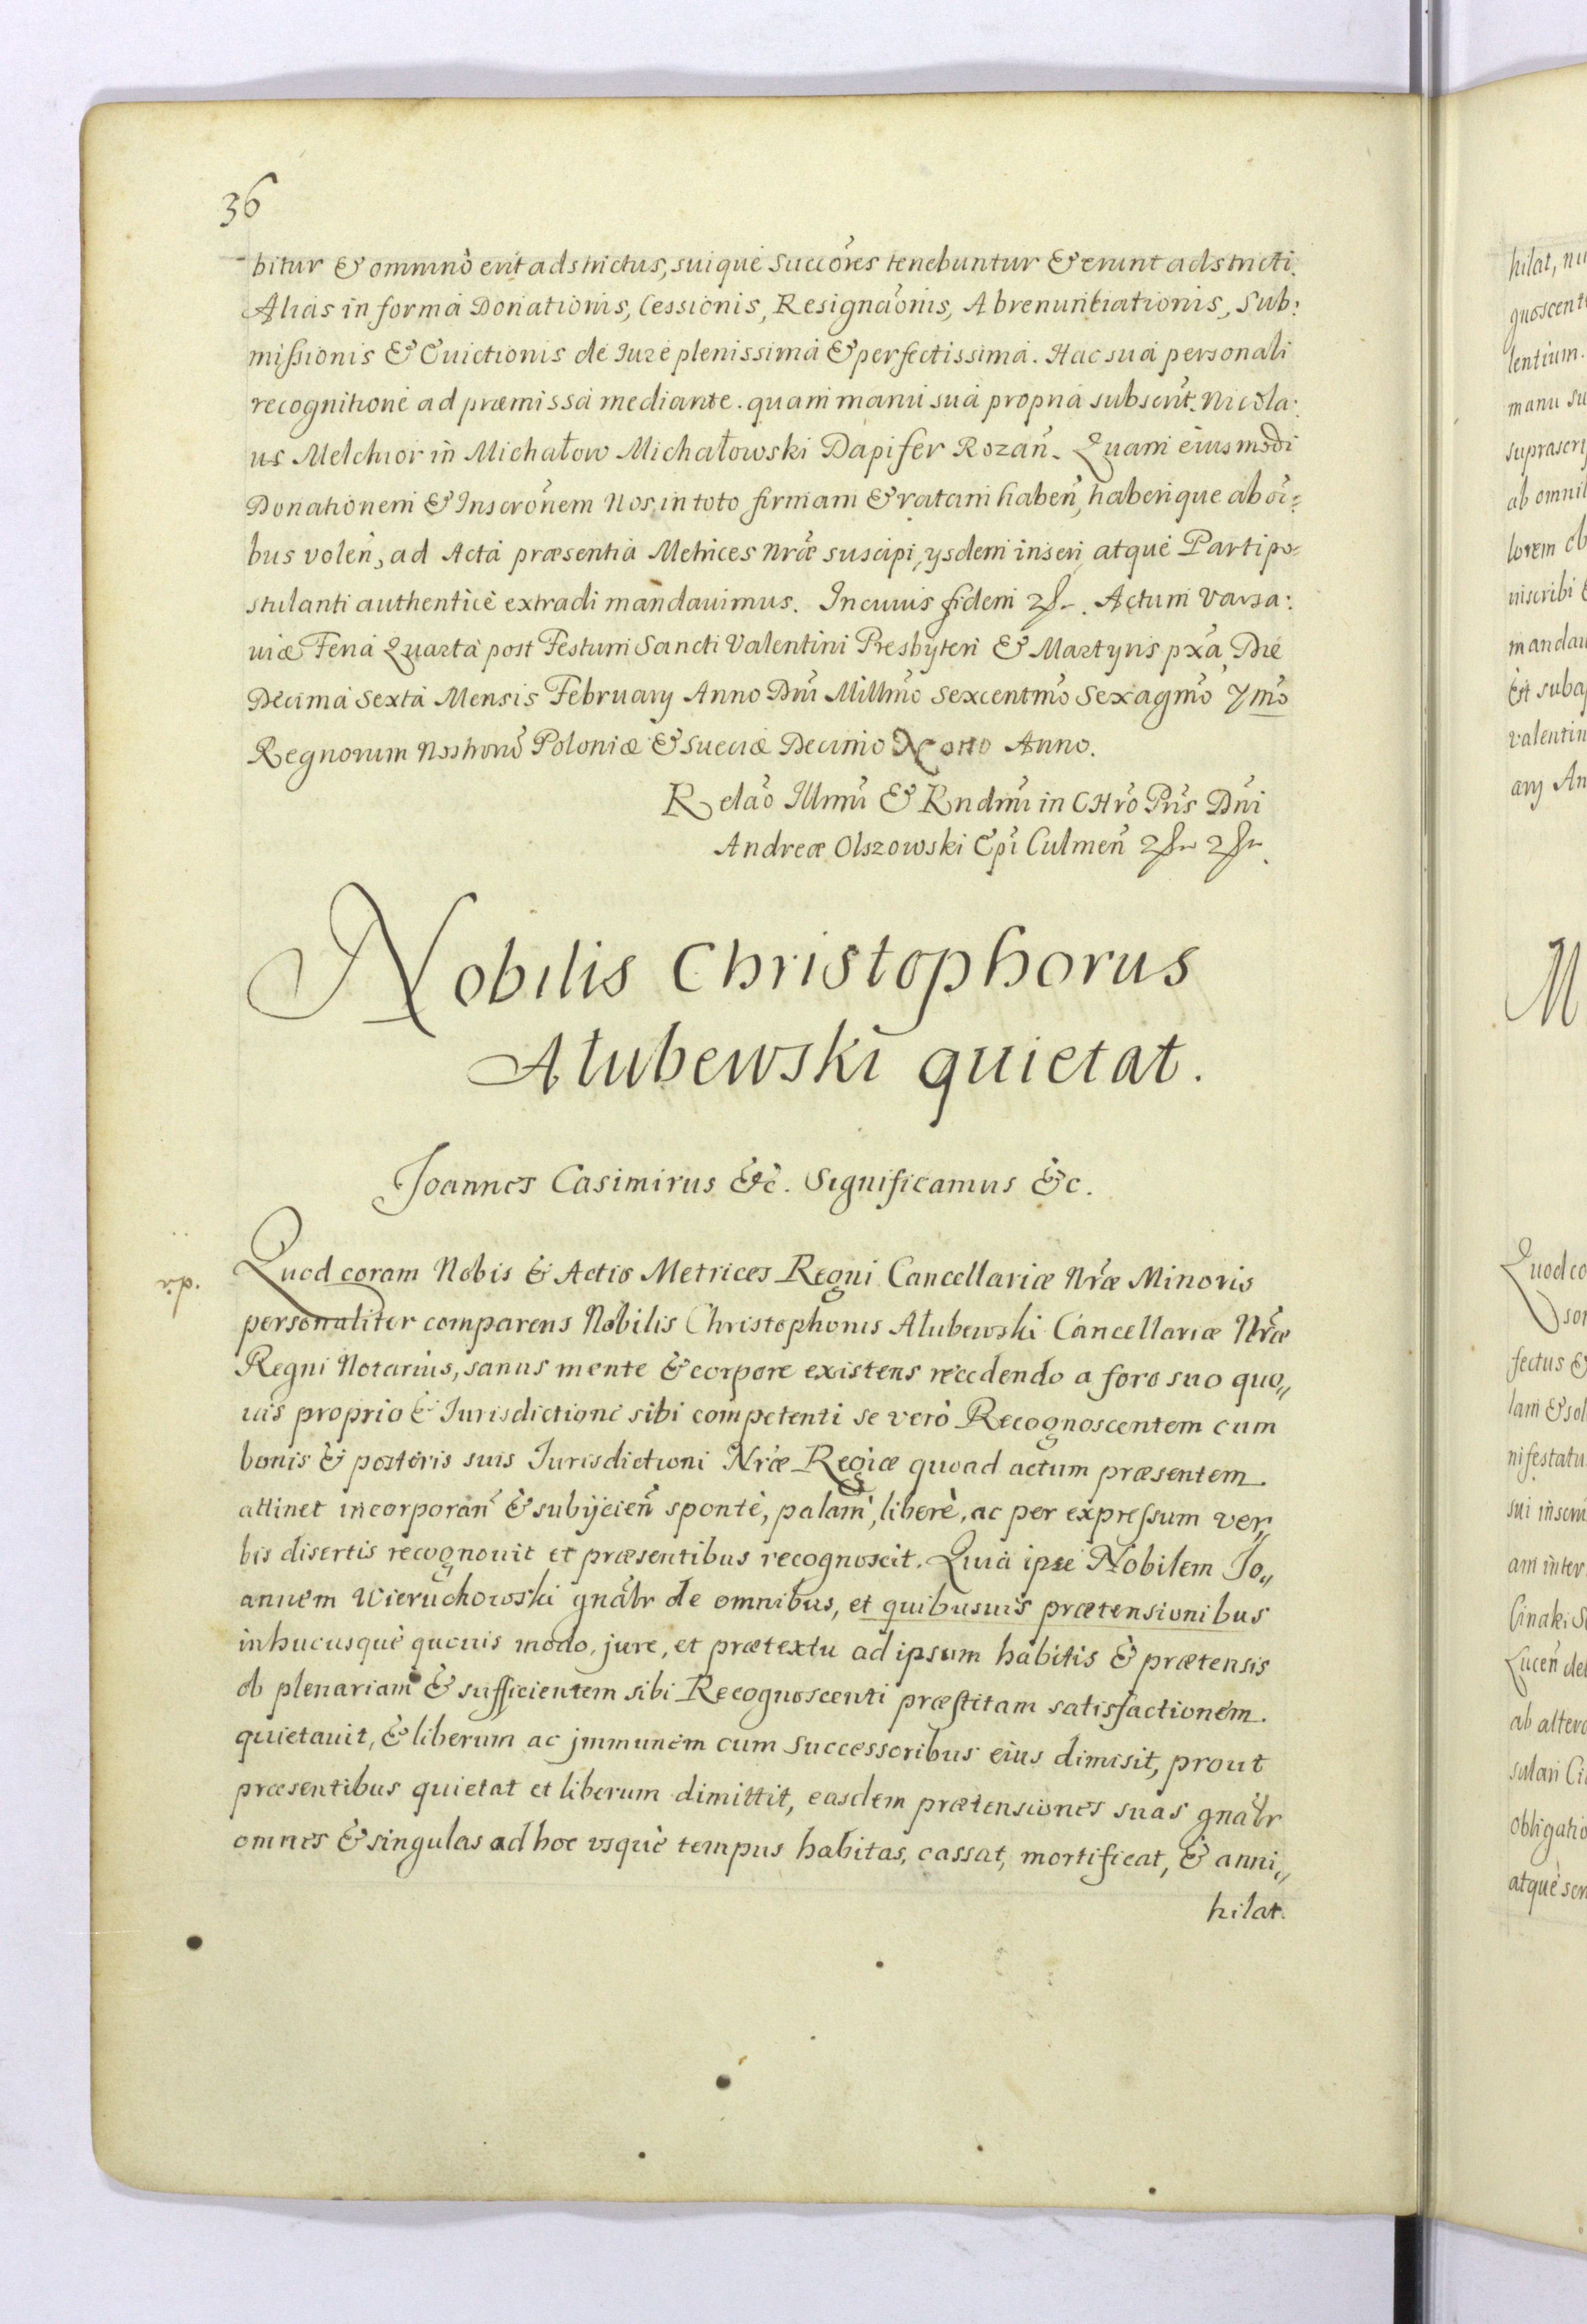 36
bitur & omninò erit adstrictus, suiquè Succõres tenebuntur & erunt adstricti.
Alias in forma Donationis, Cessionis, Resignaõnis, Abrenuntiationis, Sub:
mißionis & Euictionis de Iure plenissima & perfectissima. Hac sua personali
recognitione ad præmissa mediante. quam manu sua propria subscrit. Nicola:
us Melchior in Michałow Michałowski Dapifer Rozañ. Quam eiusmodi
Donationem & Inscrõnem Nos in toto firmam & ratam habeñ, haberique ab oi=
bus voleñ, ad Acta præsentia Metrices Nræ suscipi, ysdem inseri, atquè Parti po=
stulanti authenticè extradi mandauimus. In cuius fidem &c. Actum Varsa:
uiæ Feria Quarta post Festum Sancti Valentini Presbyteri & Martyris pxã, Die
Decima Sexta Mensis February Anno Dni Millmo Sexcentmo Sexagmo 7mo
Regnorum Nostrorũ Poloniæ & Sueciæ Decimo Nono Anno.
Relaõ Illmi & Rndmi in CHro Pris Dni
Andreæ Olszowski Epi Culmeñ &c &c.
Nobilis Christophorus
Ałubewski quietat.
Joannes Casimirus &c. Significamus &c.
Quod coram Nobis & Actis Metrices Regni Cancellariæ Nræ Minoris
personaliter comparens Nobilis Christophorus Ałubewski Cancellariæ Nræ
Regni Notarius, sanus mente & corpore existens recedendo a foro suo quo„
uis proprio & Jurisdictione sibi competenti se verò Recognoscentem cum
bonis & posteris suis Jurisdictioni Nræ Regiæ quoad actum præsentem
attinet incorporañ & subijcieñ spontè, palam, liberè, ac per expreſsum ver„
bis disertis recognouit et præsentibus recognoscit. Quia ipse Nobilem Jo„
annem Wieruchowski gnãlr de omnibus, et quibusuis prætensionibus
inhucusquè quouis modo, jure, et prætextu ad ipsum habitis & prætensis
ob plenariam & sufficientem sibi Recognoscenti præstitam satisfactionem
quietauit, & liberum ac jmmunem cum Successoribus eius dimisit, prout
præsentibus quietat et liberum dimittit, easdem prætensiones suas gnãlr
omnes & singulas ad hoc vsquè tempus habitas, cassat, mortificat, & anni„
hilat.